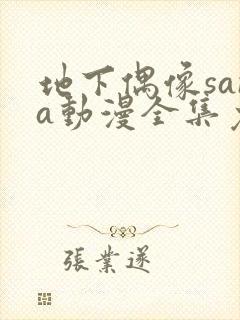 地下偶像sa
a動漫全集
張業遂